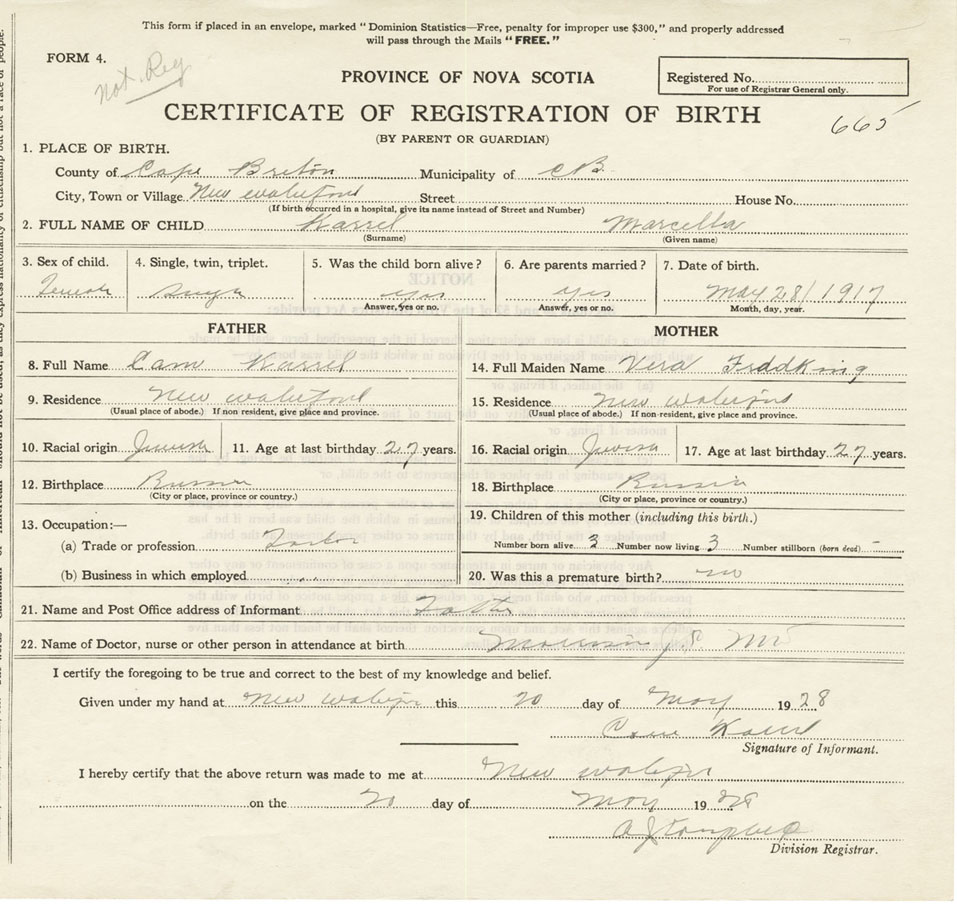 This form if placed in an envelope, marked "Dominion Statistics—Free, penalty for improper use $300," and properly addressed
will pass through the Mails "FREE."
FORM 4.
Not Reg
PROVINCE OF NOVA SCOTIA
Registered No.
For use of Registrar General only.
CERTIFICATE OF REGISTRATION OF BIRTH
665
(BY PARENT OR GUARDIAN)
1. PLACE OF BIRTH.
County of Cape Breton Municipality of CB
City, Town or Village New Waterford Street House No.
(If birth occurred in a hospital, give its name instead of Street and Number)
2. FULL NAME OF CHILD Karrel Marcella
(Surname) (Given name)
3. Sex of child. 4. Single, twin, triplet. 5. Was the child born alive? 6. Are parents married? 7. Date of birth.
Female Single yes yes May 28/1917
Answer, yes or no. Answer, yes or no. Month, day, year.
FATHER MOTHER
8. Full Name Cam Karrel 14. Full Maiden Name Vera
9. Residence New Waterford 15. Residence New Waterford
(Usual place of abode.) If non resident, give place and province. (Usual place of abode.) If non-resident, give place and province.
10. Racial origin Jewish 11. Age at last birthday 27 years. 16. Racial origin Jewish 17. Age at last birthday 27 years.
12. Birthplace Russia 18. Birthplace Russia
(City or place, province or country.) (City or place, province or country.)
13. Occupation:— 19. Children of this mother (including this birth.)
(a) Trade or profession Number born alive 3 Number now living 3 Number stillborn (born dead) -
(b) Business in which employed 20. Was this a premature birth? no
21. Name and Post Office address of Informant Father
22. Name of Doctor, nurse or other person in attendance at birth
I certify the foregoing to be true and correct to the best of my knowledge and belief.
Given under my hand at New Waterford this 20 day of May 1928
Cam Karrel
Signature of Informant.
I hereby certify that the above return was made to me at New Waterford
on the 20 day of May 1928
Division Registrar.